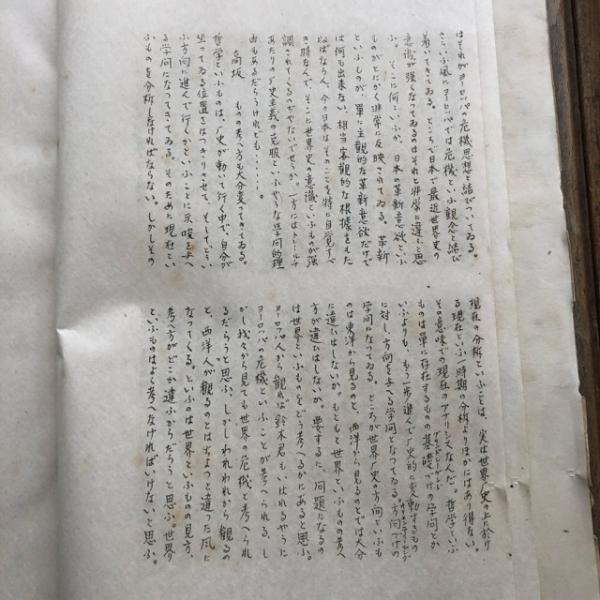 はそれがヨーロッパの危機思想と結びついてゐる。
さういふ風にヨーロッパでは危機といふ観念と結び
着いてきてゐる。ところで日本で最近世界史の
意識が強くなつてゐるのはそれと非常に違ふと思
ふ。そこに何といふか、日本の革新意欲といふ
ものがとにかく非常に反映されてゐる。革新
といふものが、単に主観的な革新意欲だけで
は何も出来ない、相当客観的な根拠をもた
ねばならん、今の日本はそのことを特に自覚すべ
き時なんで、そこに世界史の意識といふものが強
調されてくるのぢやないでせうか。一方にはトレールチ
あたりの歴史主義の克服といふやうな学問的理
由もあるだらうけれども・・・・・。
高坂 ものの考へ方も大分変つてきてゐる。
哲学といふものは、歴史が動いて行く中で、自分が
坐つてゐる位置をはつきりさせて、そしてどうい
ふ方向に進んで行くかといふことに示唆を与へ
る学問になつてきてゐる。そのため現在とい
ふものを分析しなければならない。しかしその
現在の分析といふことは、実は世界歴史の上に於け
る現在といふ一時期の分析よりほかにはあり得ない。
その意味での現在のアナリシスなんだ。哲学といふ
ものは単に存在するものの基礎づけの学問とか
いふよりも、もう一歩進んで歴史的に変動するもの
に対し、方向を与へる学問となつてゐる。方向づけの
学問になつてゐる。ところが世界歴史の方向といふも
のは東洋から見るのと、西洋から見るのとでは大分
に違ひはしないか。もともと世界といふものの考へ
方が違ひはしないか。要するに、問題になるの
は世界といふものをどう考へるかにあると思ふ。
ヨーロッパ人から観れば鈴木君もいはれるやうに
ヨーロッパの危機といふことが考へられる、し
かし我々から見ても世界の危機と考へられ
るだらうと思ふ。しかしわれわれから観るの
と、西洋人が観るのとはちよつと違つた風に
なつてくる。といふのは世界といふものの見方、
考へ方がどこか違ふからだらうと思ふ。世界
といふものはよく考へなければいけないと思ふ。